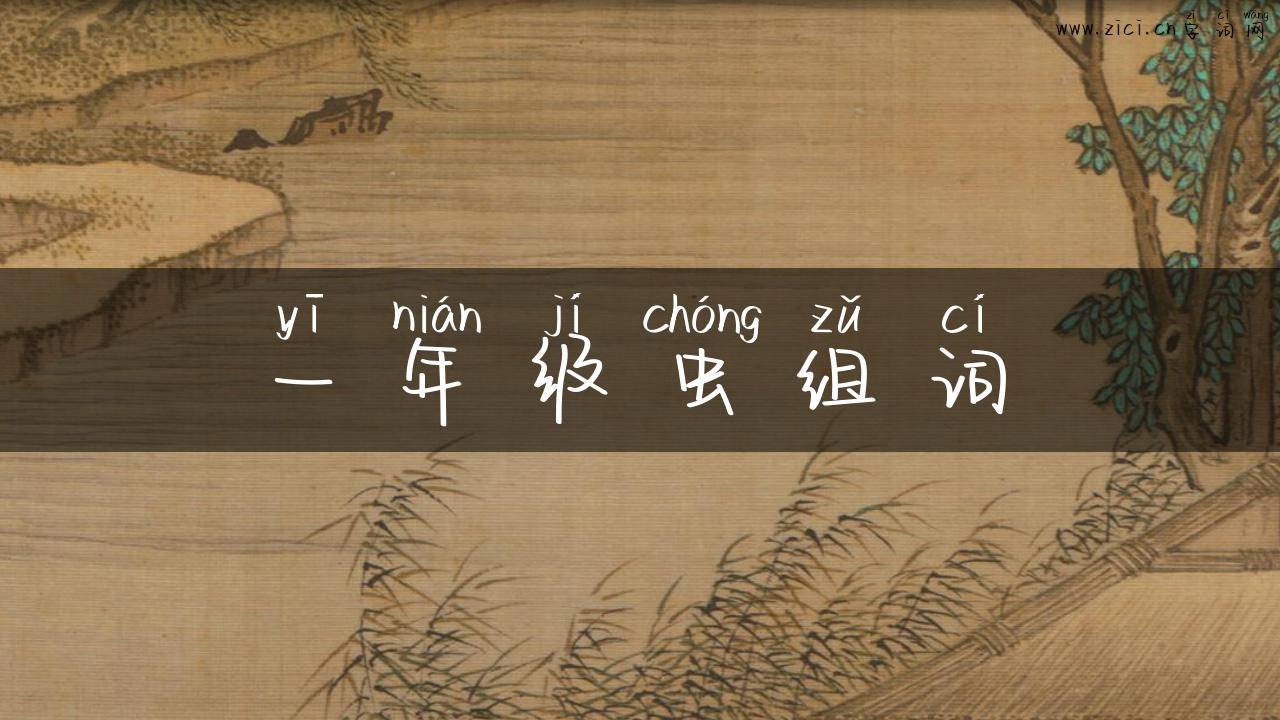 zì cí wǎng
www.zici.cn字词网
yī nián jí chóng zǔ cí
一年级虫组词